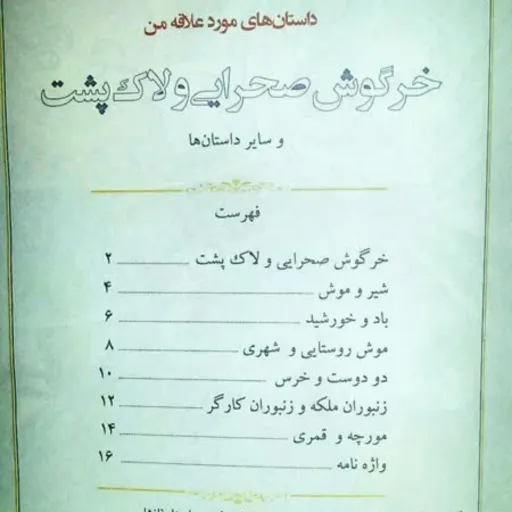 داستان‌های مورد علاقه من
خرگوش صحرایی و لاک پشت
و سایر داستان‌ها
فهرست
خرگوش صحرایی و لاک پشت ۲
شیر و موش ۴
باد و خورشید ۶
موش روستایی و شهری ۸
دو دوست و خرس ۱۰
زنبوران ملکه و زنبوران کارگر ۱۲
مورچه و قمری ۱۴
واژه نامه ۱۶